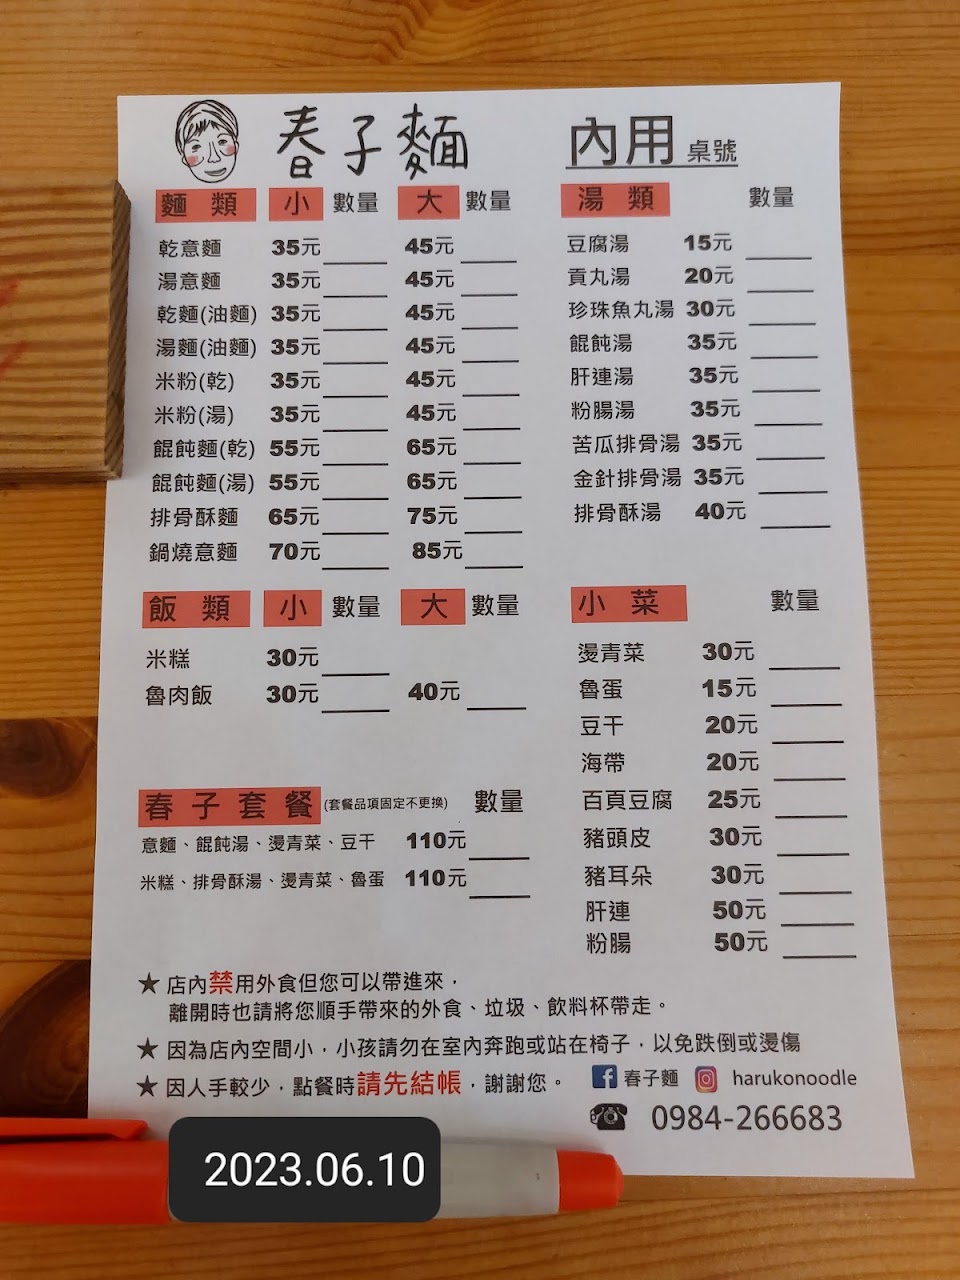 春子麵
內用 桌號
麵類 小 數量 大 數量
乾意麵 35元 45元
湯意麵 35元 45元
乾麵(油麵) 35元 45元
湯麵(油麵) 35元 45元
米粉(乾) 35元 45元
米粉(湯) 35元 45元
餛飩麵(乾) 55元 65元
餛飩麵(湯) 55元 65元
排骨酥麵 65元 75元
鍋燒意麵 70元 85元
飯類 小 數量 大 數量
米糕 30元
魯肉飯 30元 40元
春子套餐 (套餐品項固定不更換) 數量
意麵、餛飩湯、燙青菜、豆干 110元
米糕、排骨酥湯、燙青菜、魯蛋 110元
湯類 數量
豆腐湯 15元
貢丸湯 20元
珍珠魚丸湯 30元
餛飩湯 35元
肝連湯 35元
粉腸湯 35元
苦瓜排骨湯 35元
金針排骨湯 35元
排骨酥湯 40元
小菜 數量
燙青菜 30元
魯蛋 15元
豆干 20元
海帶 20元
百頁豆腐 25元
豬頭皮 30元
豬耳朵 30元
肝連 50元
粉腸 50元
★ 店內禁用外食但您可以帶進來，
離開時也請將您順手帶來的外食、垃圾、飲料杯帶走。
★ 因為店內空間小，小孩請勿在室內奔跑或站在椅子，以免跌倒或燙傷
★ 因人手較少，點餐時請先結帳，謝謝您。
春子麵 harukonoodle
0984-266683
2023.06.10